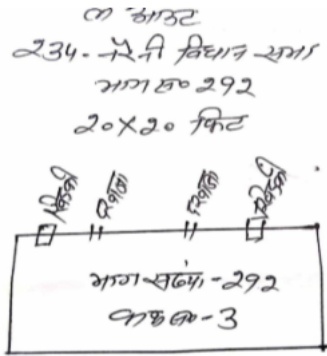 ले आउट
234- नरैनी विधान सभा
भाग सं० 292
20X20 फिट
खिड़की दरवाजा दरवाजा खिड़की
भाग संख्या-292
कक्ष सं०-3